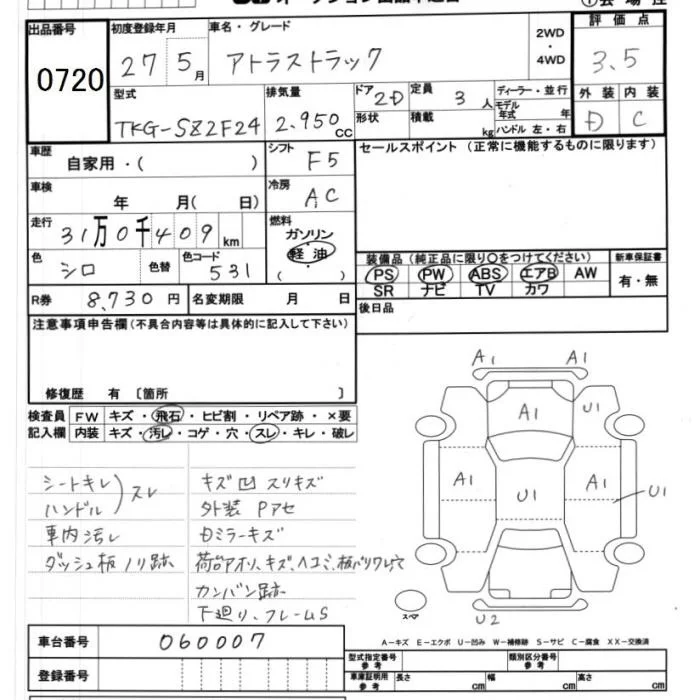 出品番号 初度登録年月 車名・グレード 2WD・4WD 評価点
0720 27 5月 アトラストラック 3.5
型式 排気量 ドア 2D 定員 3人 ディーラー・並行 外装 内装
TKG-SZ2F24 2.950cc 形状 積載 kg モデル年式 年 ハンドル 左・右 D C
車歴 シフト F5 セールスポイント (正常に機能するものに限ります)
自家用・( )
車検 年 月( 日) 冷房 AC
走行 31万0千409km 燃料 ガソリン 軽油 ( )
色 シロ 色替 色コード 531 装備品(純正品に限り○をつけてください) 新車保証書
PS PW ABS エアB AW 有・無
SR ナビ TV カワ
R券 8,730円 名変期限 月 日 後日品
注意事項申告欄(不具合内容等は具体的に記入して下さい)
修復歴 有 〔箇所 〕
検査員 FW キズ・飛石・ヒビ割・リペア跡・×要
記入欄 内装 キズ・汚レ・コゲ・穴・スレ・キレ・破レ
シートキレ
ハンドル スレ
車内汚レ
ダッシュ板ノリ跡
キズ凹スリキズ
外装 Pアセ
Dミラーキズ
荷台アオリ、キズ、ヘコミ、板バリワレ
カンバン跡
下廻り、フレームS
A1 A1
A1 U1
A1 U1 A1 U1
スペア
U2
車台番号 060007
A-キズ E-エクボ U-凹み W-補修跡 S-サビ C-腐食 XX-交換済
登録番号
型式指定番号 参考 類別区分番号 参考
車庫証明用 参考 長さ cm 幅 cm 高さ cm